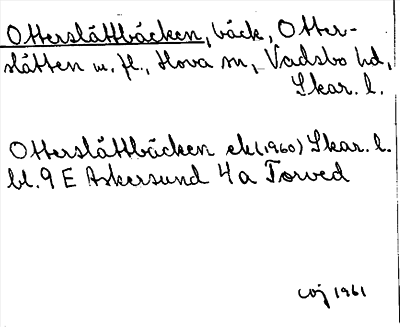 Otterslättbäcken, bäck, Otter-
slätten m. fl., Hova sn, Vadsbo hd,
Skar. l.
Otterslättbäcken ek (1960) Skar. l.
bl. 9 E Askersund 4a Torved
1961